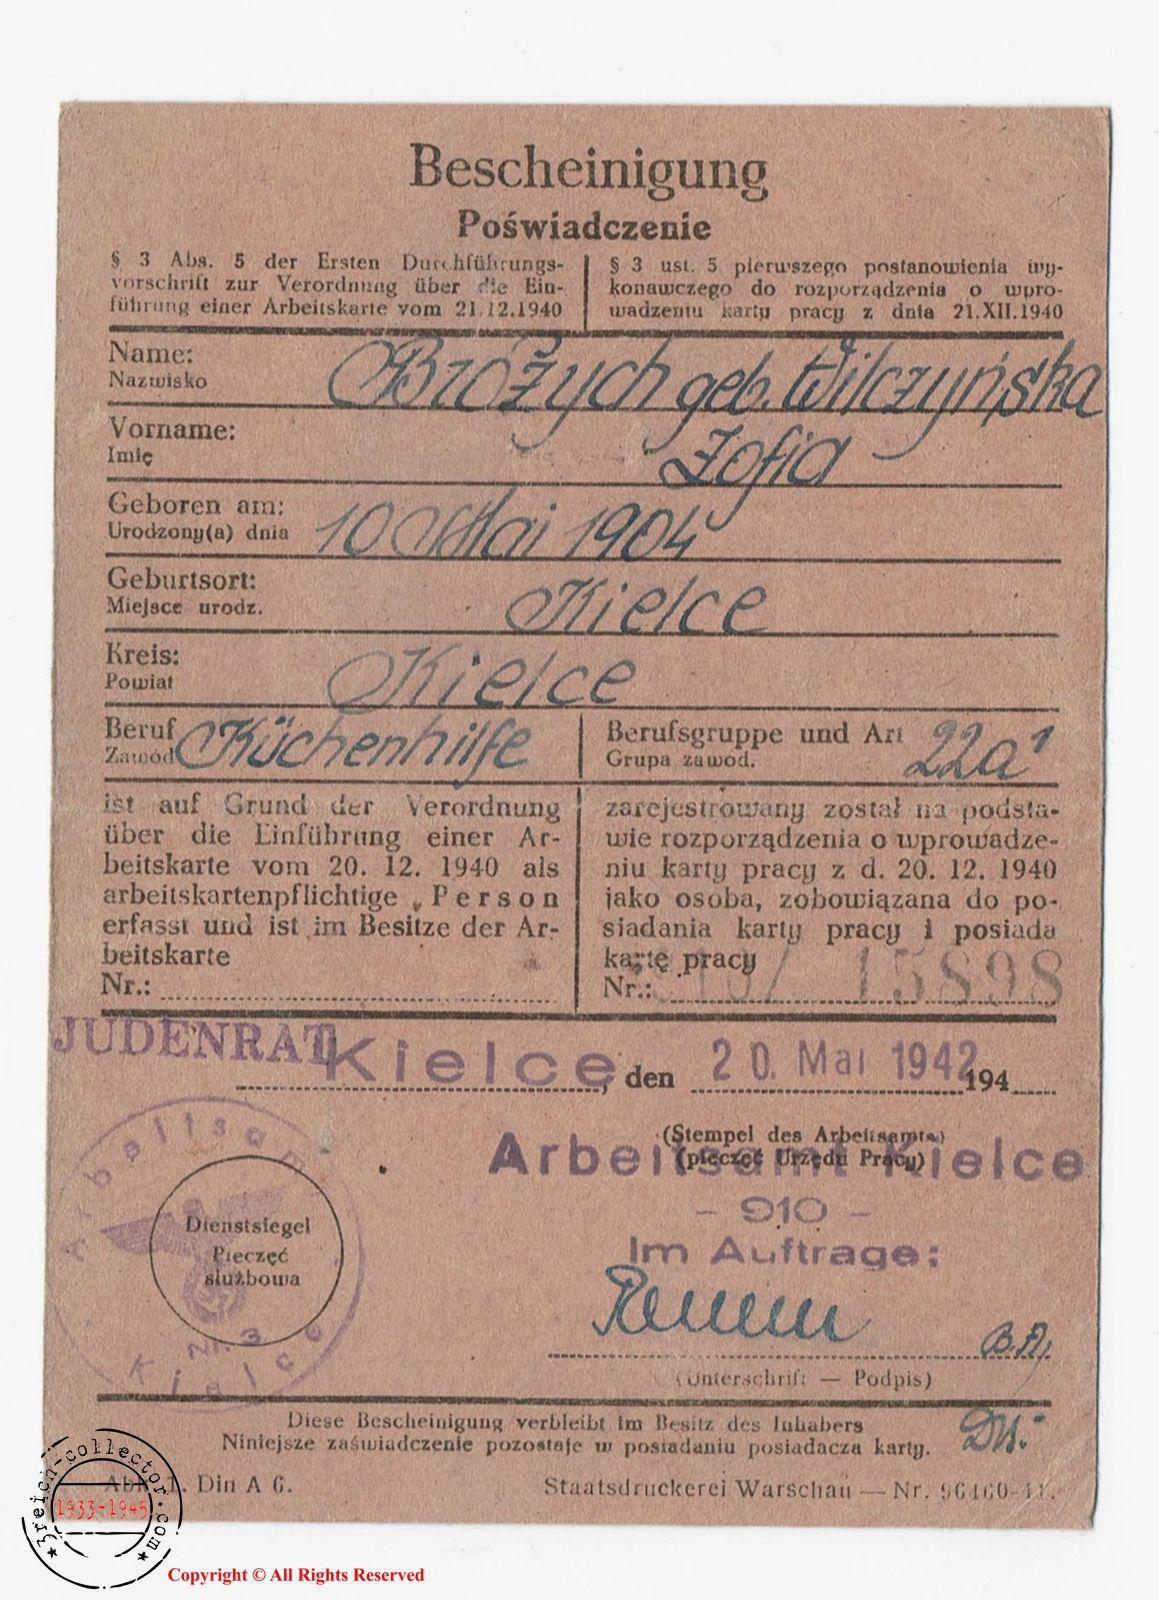 Bescheinigung
Poświadczenie
§ 3 Abs. 5 der Ersten Durchführungs-
vorschrift zur Verordnung über die Ein-
führung einer Arbeitskarte vom 21.12.1940
§ 3 ust. 5 pierwszego postanowienia wy-
konawczego do rozporządzenia o wpro-
wadzeniu karty pracy z dnia 21.XII.1940
Name: Bróżych geb. Wilczyńska
Nazwisko
Vorname: Zofia
Imię
Geboren am: 10 Mai 1904
Urodzony(a) dnia
Geburtsort: Kielce
Miejsce urodz.
Kreis: Kielce
Powiat
Beruf Küchenhilfe
Zawód
Berufsgruppe und Art 22a1
Grupa zawod.
ist auf Grund der Verordnung
über die Einführung einer Ar-
beitskarte vom 20. 12. 1940 als
arbeitskartenpflichtige Person
erfasst und ist im Besitze der Ar-
beitskarte
Nr.:
zarejestrowany został na podsta-
wie rozporządzenia o wprowadze-
niu karty pracy z d. 20. 12. 1940
jako osoba, zobowiązana do po-
siadania karty pracy i posiada
kartę pracy
Nr.: 15898
JUDENRAT
Kielce, den 20. Mai 1942 194
(Stempel des Arbeitsamts)
(pieczęć Urzędu Pracy)
Arbeitsamt Kielce
- 910 -
Im Auftrage:
Arbeitsamt
Dienstsiegel
Pieczęć
służbowa
Nr. 3
Kielce
(Unterschrift — Podpis)
Diese Bescheinigung verbleibt im Besitz des Inhabers
Niniejsze zaświadczenie pozostaje w posiadaniu posiadacza karty.
Din A 6.
Staatsdruckerei Warschau — Nr. 96460-41.
3reich-collector.com
1933-1945
Copyright © All Rights Reserved